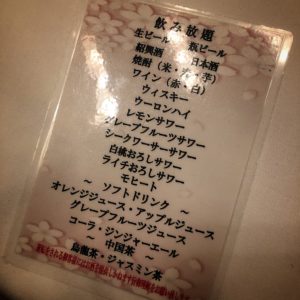 飲み放題
生ビール 瓶ビール
紹興酒 日本酒
焼酎(米・麦・芋)
ワイン(赤・白)
ウィスキー
ウーロンハイ
レモンサワー
グレープフルーツサワー
シークワーサーサワー
白桃おろしサワー
ライチおろしサワー
モヒート
~ ソフトドリンク ~
オレンジジュース・アップルジュース
グレープフルーツジュース
コーラ・ジンジャーエール
~ 中国茶 ~
烏龍茶・ジャスミン茶